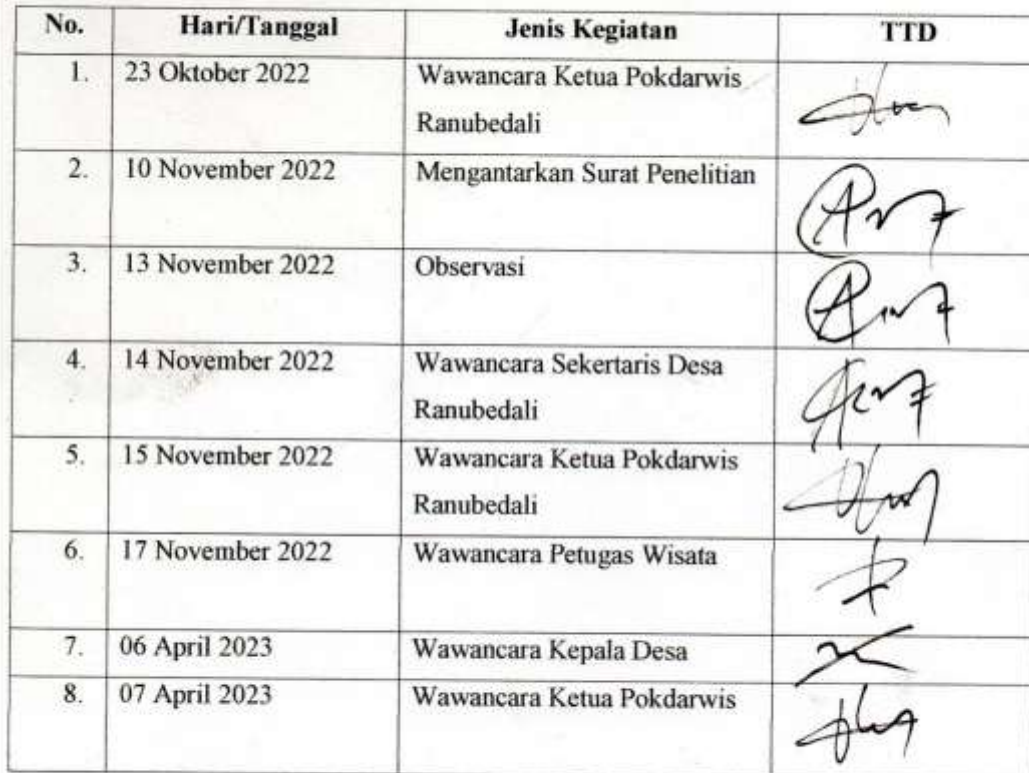 No. Hari/Tanggal Jenis Kegiatan TTD
1. 23 Oktober 2022 Wawancara Ketua Pokdarwis
Ranubedali
2. 10 November 2022 Mengantarkan Surat Penelitian
3. 13 November 2022 Observasi
4. 14 November 2022 Wawancara Sekertaris Desa
Ranubedali
5. 15 November 2022 Wawancara Ketua Pokdarwis
Ranubedali
6. 17 November 2022 Wawancara Petugas Wisata
7. 06 April 2023 Wawancara Kepala Desa
8. 07 April 2023 Wawancara Ketua Pokdarwis